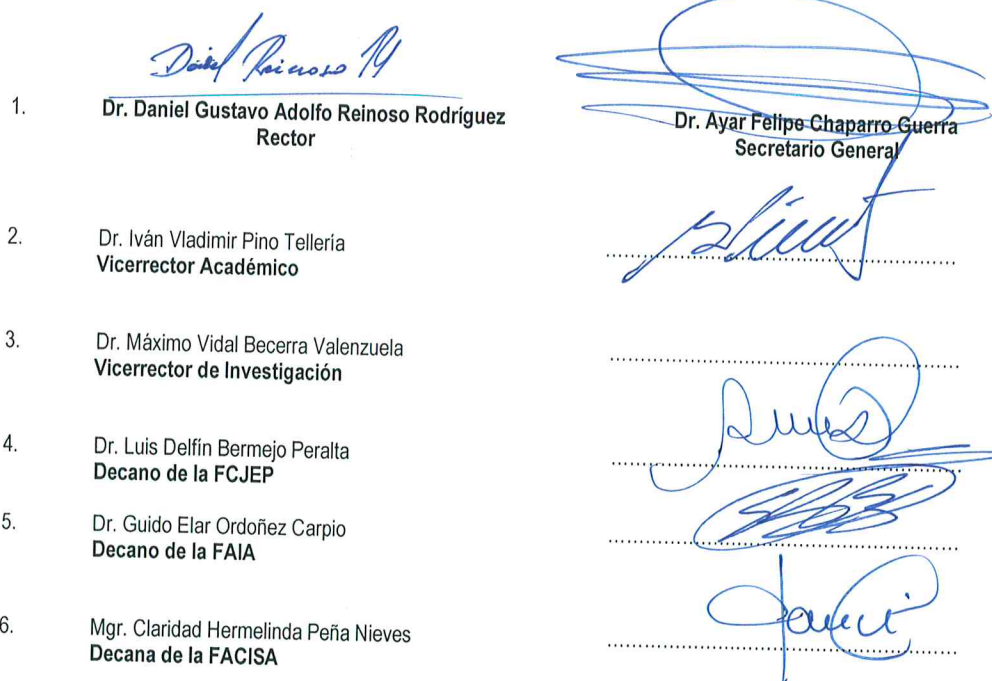 Daniel Reinoso
1.
Dr. Daniel Gustavo Adolfo Reinoso Rodríguez
Rector
Dr. Ayar Felipe Chaparro Guerra
Secretario General
2.
Dr. Iván Vladimir Pino Tellería
Vicerrector Académico
3.
Dr. Máximo Vidal Becerra Valenzuela
Vicerrector de Investigación
4.
Dr. Luis Delfín Bermejo Peralta
Decano de la FCJEP
5.
Dr. Guido Elar Ordoñez Carpio
Decano de la FAIA
6.
Mgr. Claridad Hermelinda Peña Nieves
Decana de la FACISA